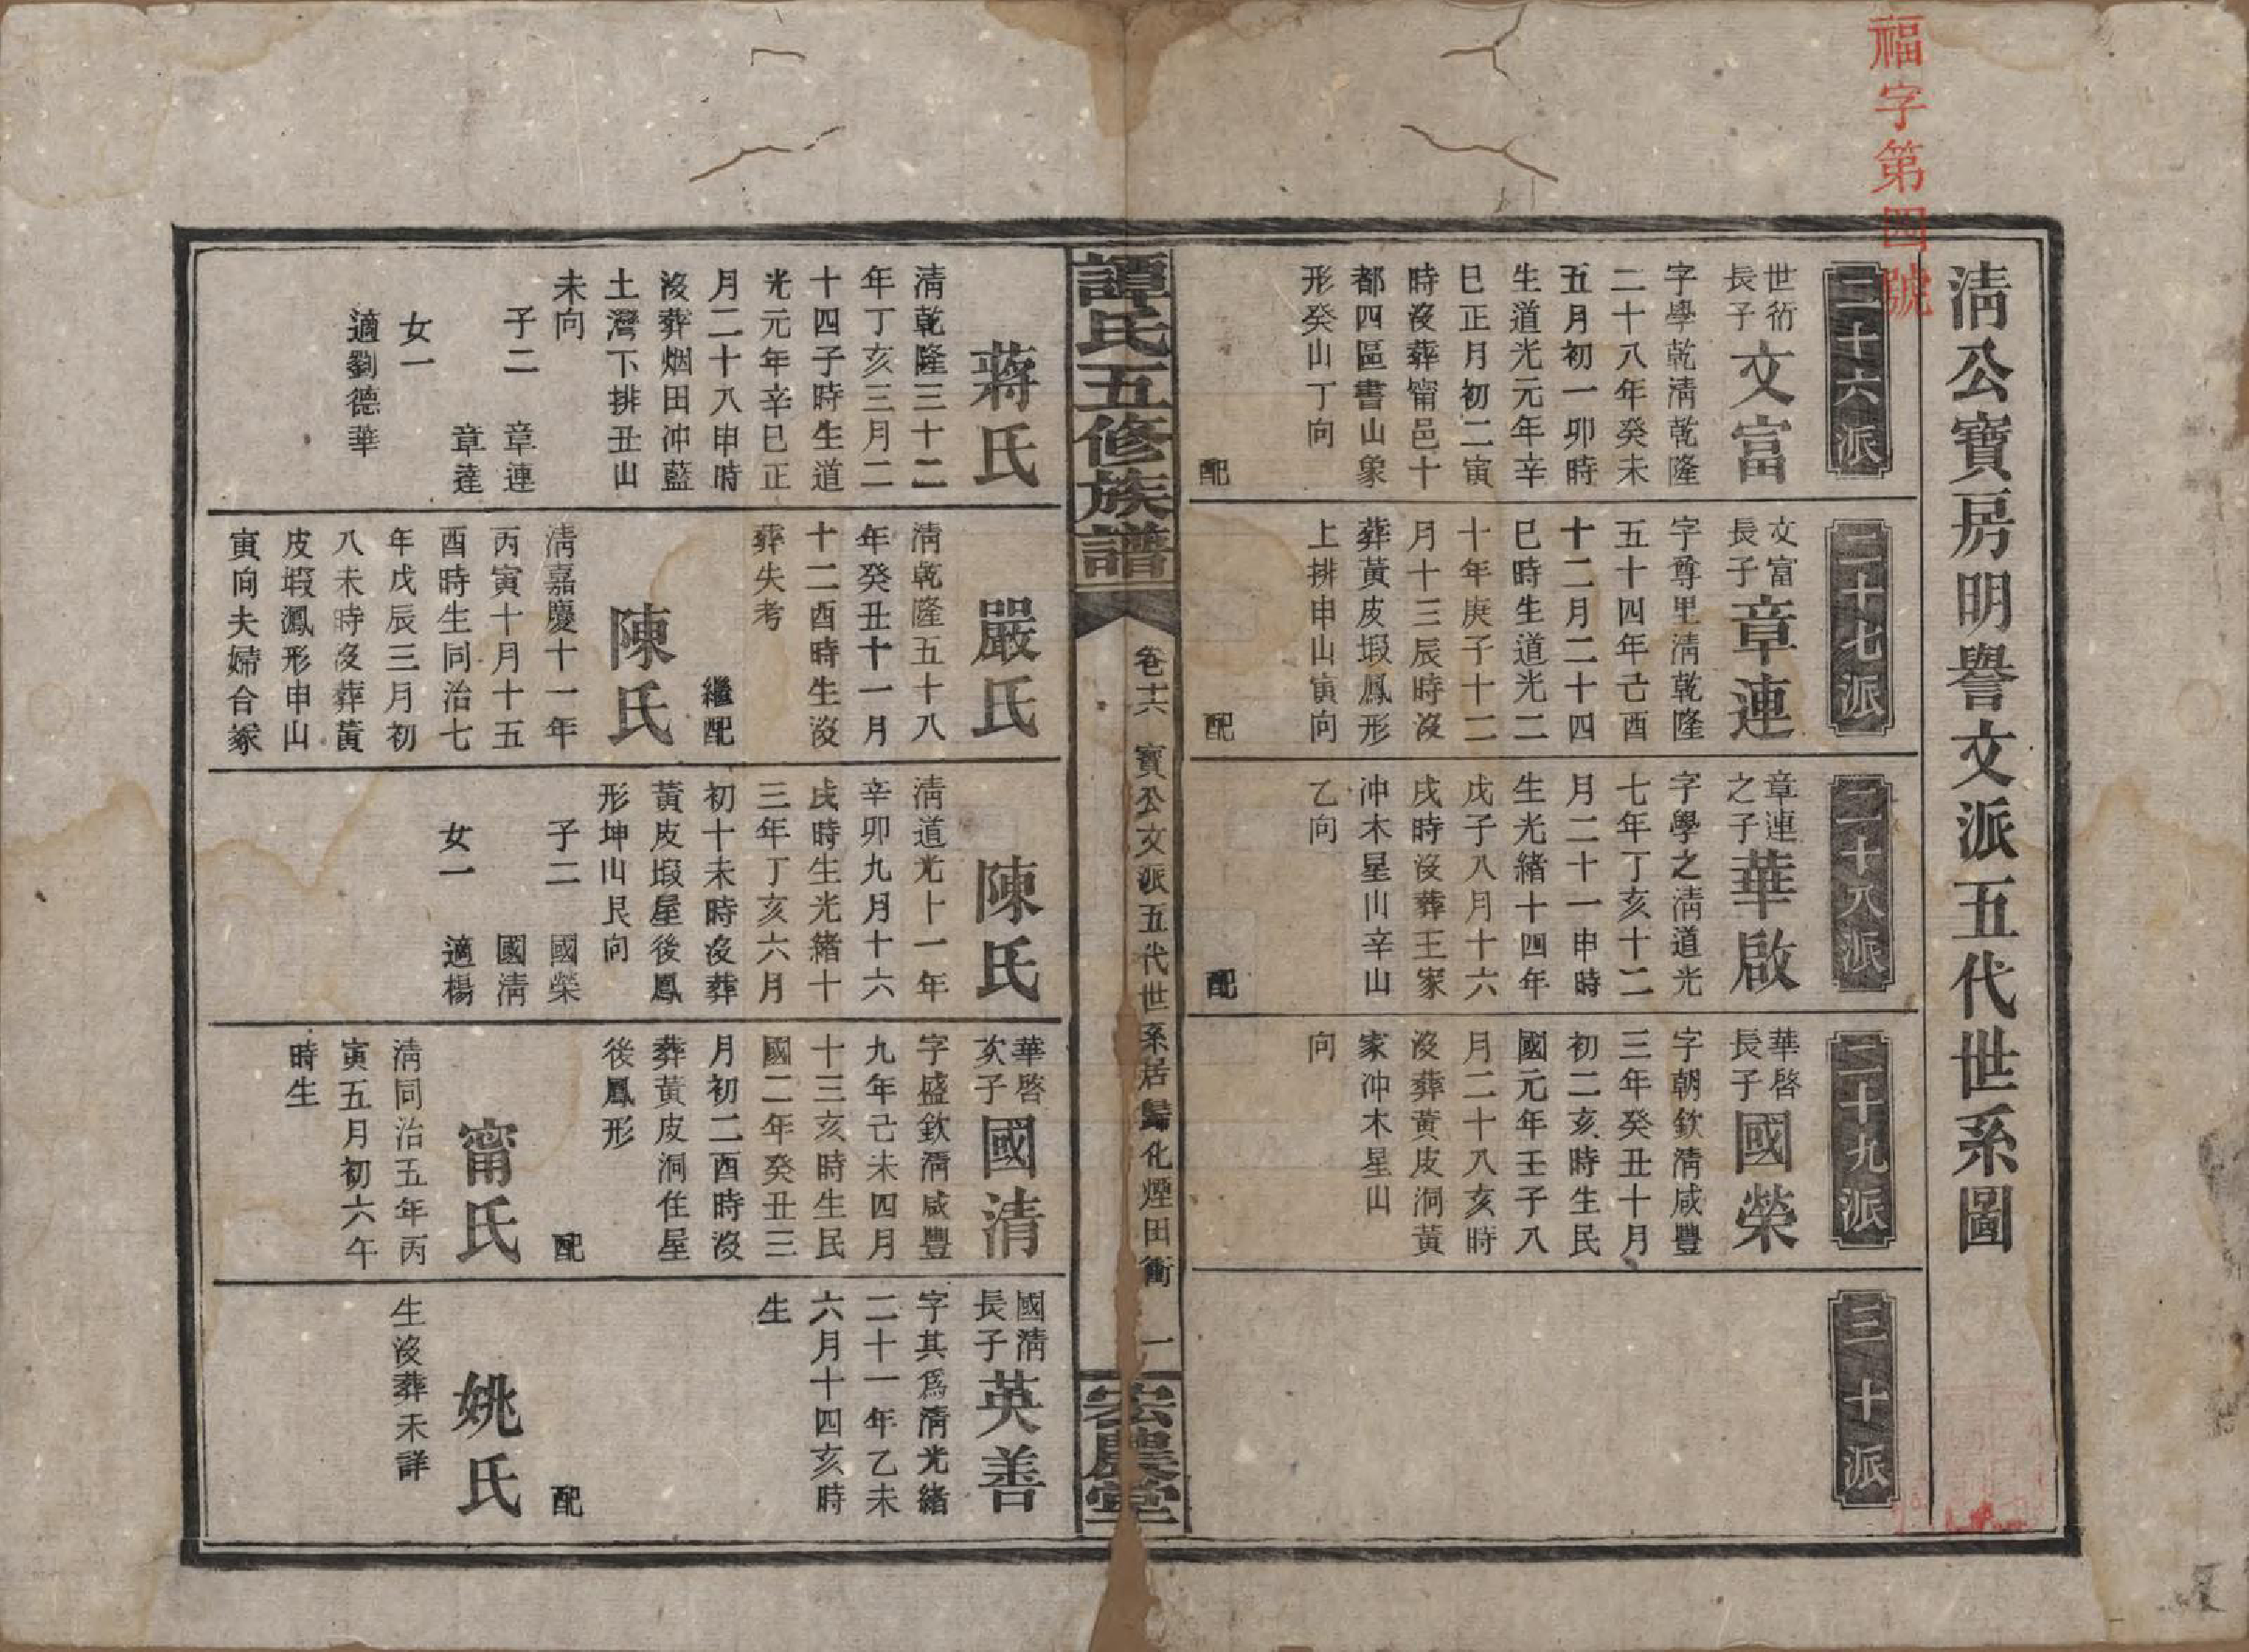 福字第四號
清公寶房明譽文派五代世系圖
二十六派
世衍長子
文富
字學乾清乾隆
二十八年癸未
五月初一卯時
生道光元年辛
巳正月初二寅
時沒葬甯邑十
都四區書山象
形癸山丁向
配
二十七派
文富長子
章連
字尊里清乾隆
五十四年己酉
十二月二十四
巳時生道光二
十年庚子十二
月十三辰時沒
葬黃皮塅鳳形
上排申山寅向
配
二十八派
章連之子
華啟
字學之清道光
七年丁亥十二
月二十一申時
生光緒十四年
戊子八月十六
戌時沒葬王家
冲木星山辛山
乙向
配
二十九派
華啓長子
國榮
字朝欽清咸豐
三年癸丑十月
初二亥時生民
國元年壬子八
月二十八亥時
沒葬黃皮洞黃
家冲木星山
向
三十派
譚氏五修族譜
卷十六 寶公文派五代世系居歸化煙田衝 一
宏農堂
蔣氏
清乾隆三十二
年丁亥三月二
十四子時生道
光元年辛巳正
月二十八申時
沒葬烟田冲藍
土灣下排丑山
未向
子二 章連
章達
女一
適劉德華
嚴氏
清乾隆五十八
年癸丑十一月
十二酉時生沒
葬失考
繼配
陳氏
清嘉慶十一年
丙寅十月十五
酉時生同治七
年戊辰三月初
八未時沒葬黃
皮塅鳳形申山
寅向夫婦合冢
陳氏
清道光十一年
辛卯九月十六
戌時生光緒十
三年丁亥六月
初十未時沒葬
黃皮塅屋後鳳
形坤山艮向
子二 國榮
國清
女一 適楊
華啓次子
國清
字盛欽清咸豐
九年己未四月
十三亥時生民
國二年癸丑三
月初二酉時沒
葬黃皮洞住屋
後鳳形
配
甯氏
清同治五年丙
寅五月初六午
時生
國清長子
英善
字其爲清光緒
二十一年乙未
六月十四亥時
生
配
姚氏
生沒葬未詳